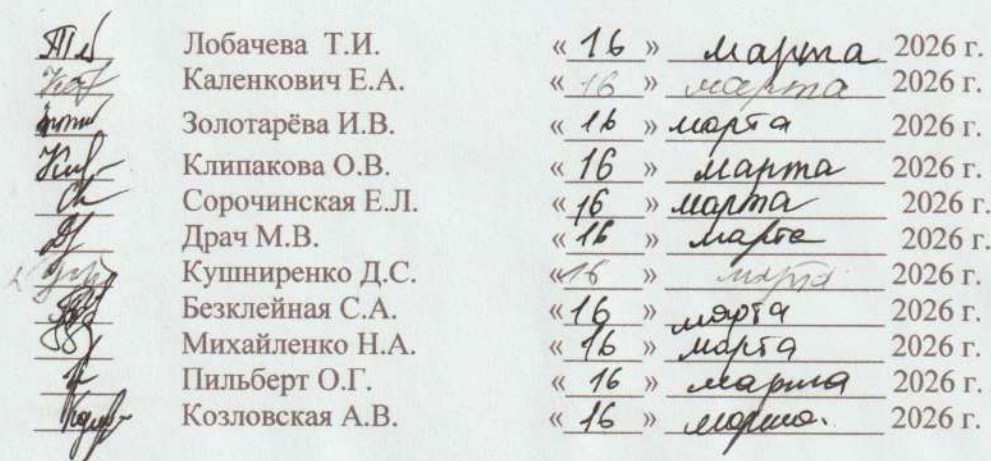 Лобачева Т.И. « 16 » марта 2026 г.
Каленкович Е.А. « 16 » марта 2026 г.
Золотарёва И.В. « 16 » марта 2026 г.
Клипакова О.В. « 16 » марта 2026 г.
Сорочинская Е.Л. « 16 » марта 2026 г.
Драч М.В. « 16 » марта 2026 г.
Кушниренко Д.С. « 16 » марта 2026 г.
Безклейная С.А. « 16 » марта 2026 г.
Михайленко Н.А. « 16 » марта 2026 г.
Пильберт О.Г. « 16 » марта 2026 г.
Козловская А.В. « 16 » марта. 2026 г.